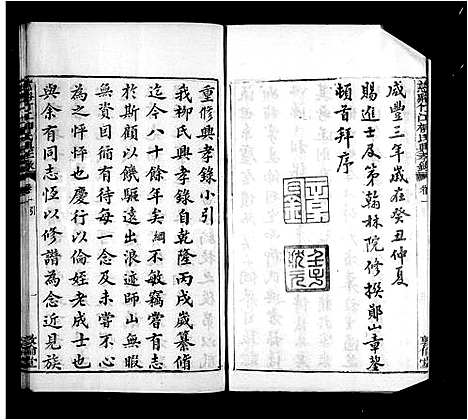 咸豐三年歲在癸丑仲夏
賜進士及第翰林院修撰鄞山章鋆
頓首拜序
重修興孝錄小引
我柳氏興孝錄自乾隆丙戌歲纂脩
迄今八十餘年矣綱不敏竊嘗有志
於斯顧以饑驅遠出浪遊師山無暇
兼及偕有待每一念及未嘗不
為之怦怦也慶行以倫姪老成士也
與余有同志恆以修譜為念近見族